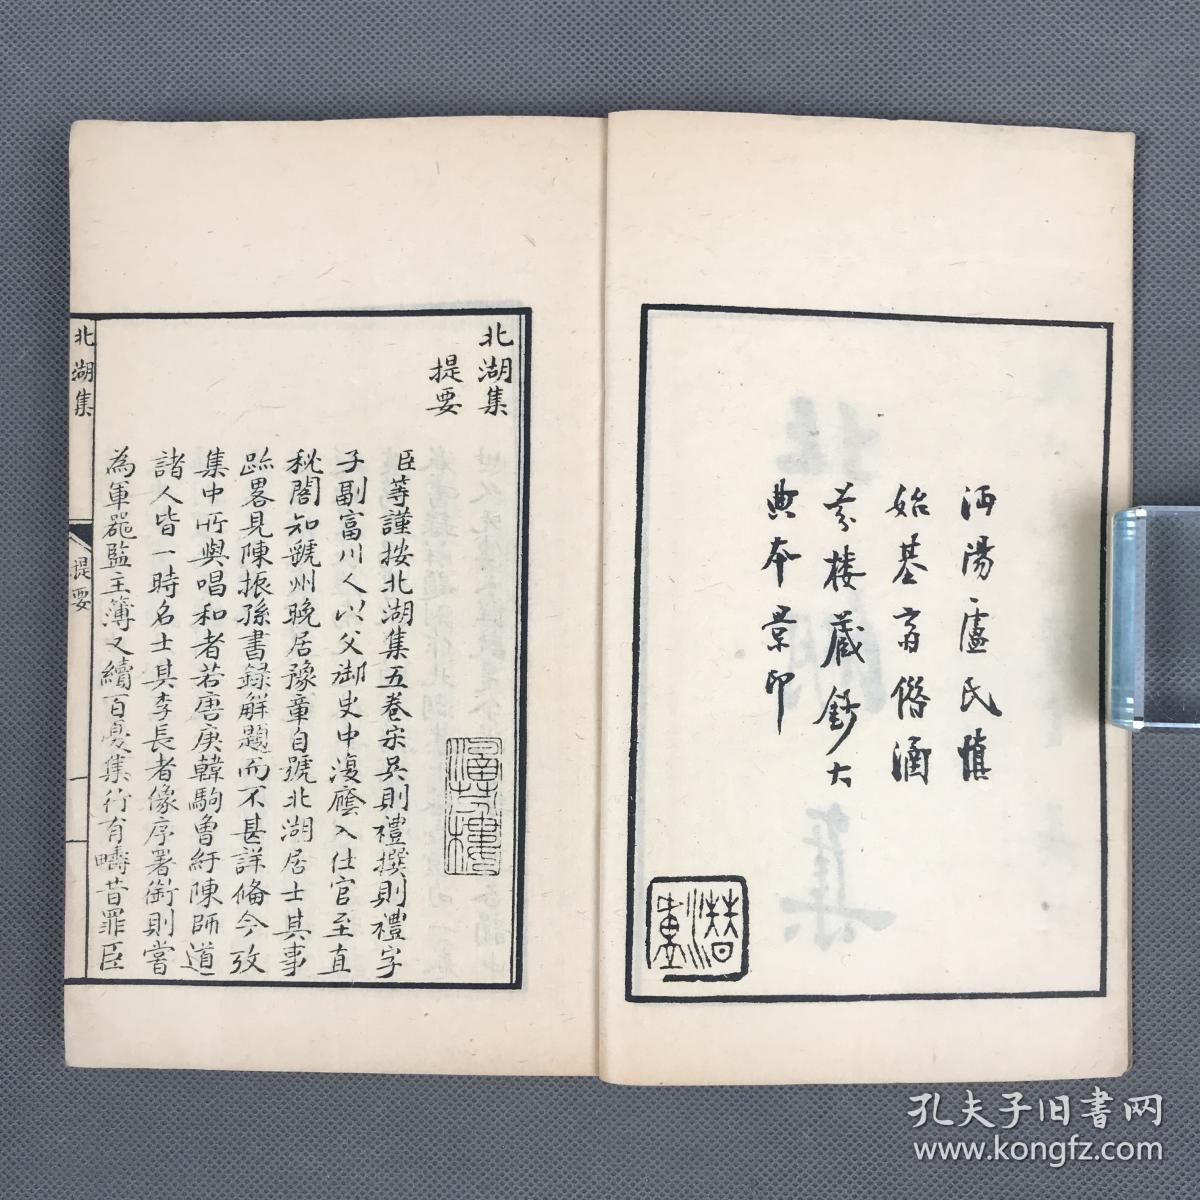 沔陽盧氏慎
始基齋借涵
芬樓藏鈔大
典本景印
潛廬
北湖集
提要
臣等謹按北湖集五卷宋吳則禮撰則禮字
子副富川人以父御史中復廕入仕官至直
秘閣知虢州晚居豫章自號北湖居士其事
跡畧見陳振孫書錄解題而不甚詳備今攷
集中所與唱和者若唐庚韓駒曾紆陳師道
諸人皆一時名士其李長者像序署銜則嘗
為軍器監主簿又續百憂集行有疇昔罪臣
涵芬樓
北湖集
提要
一
孔夫子旧书网
www.kongfz.com